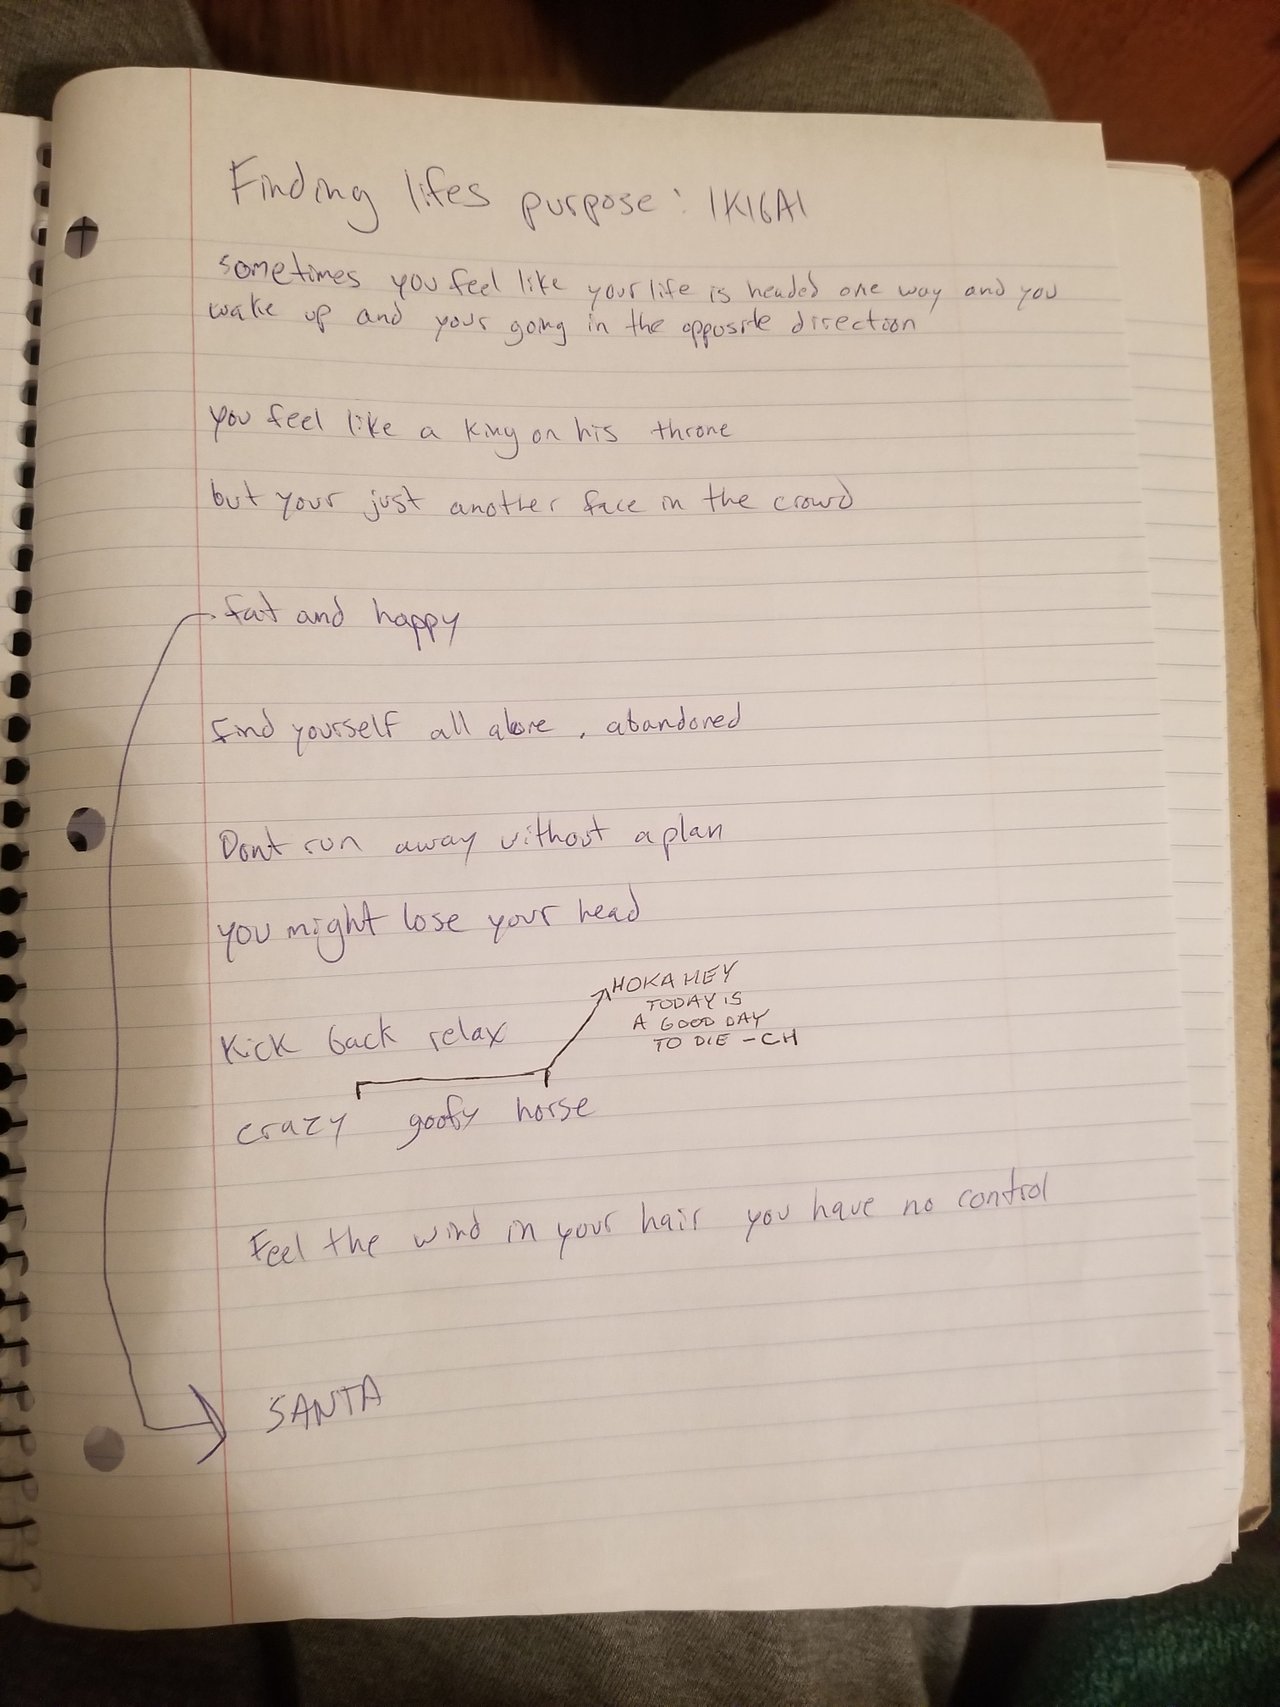 Finding lifes purpose: IKIGAI
sometimes you feel like your life is headed one way and you
wake up and your going in the opposite direction
you feel like a king on his throne
but your just another face in the crowd
fat and happy
find yourself all alone, abandoned
Dont run away without a plan
you might lose your head
Kick back relax
HOKA HEY
TODAY IS
A GOOD DAY
TO DIE - CH
crazy goofy horse
Feel the wind in your hair you have no control
SANTA